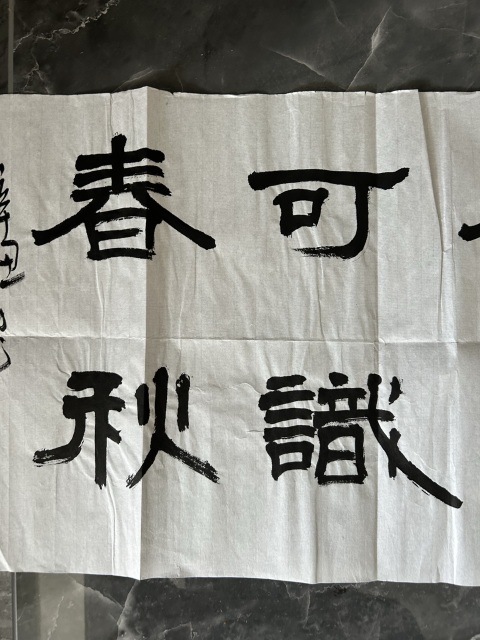 可識
春秋